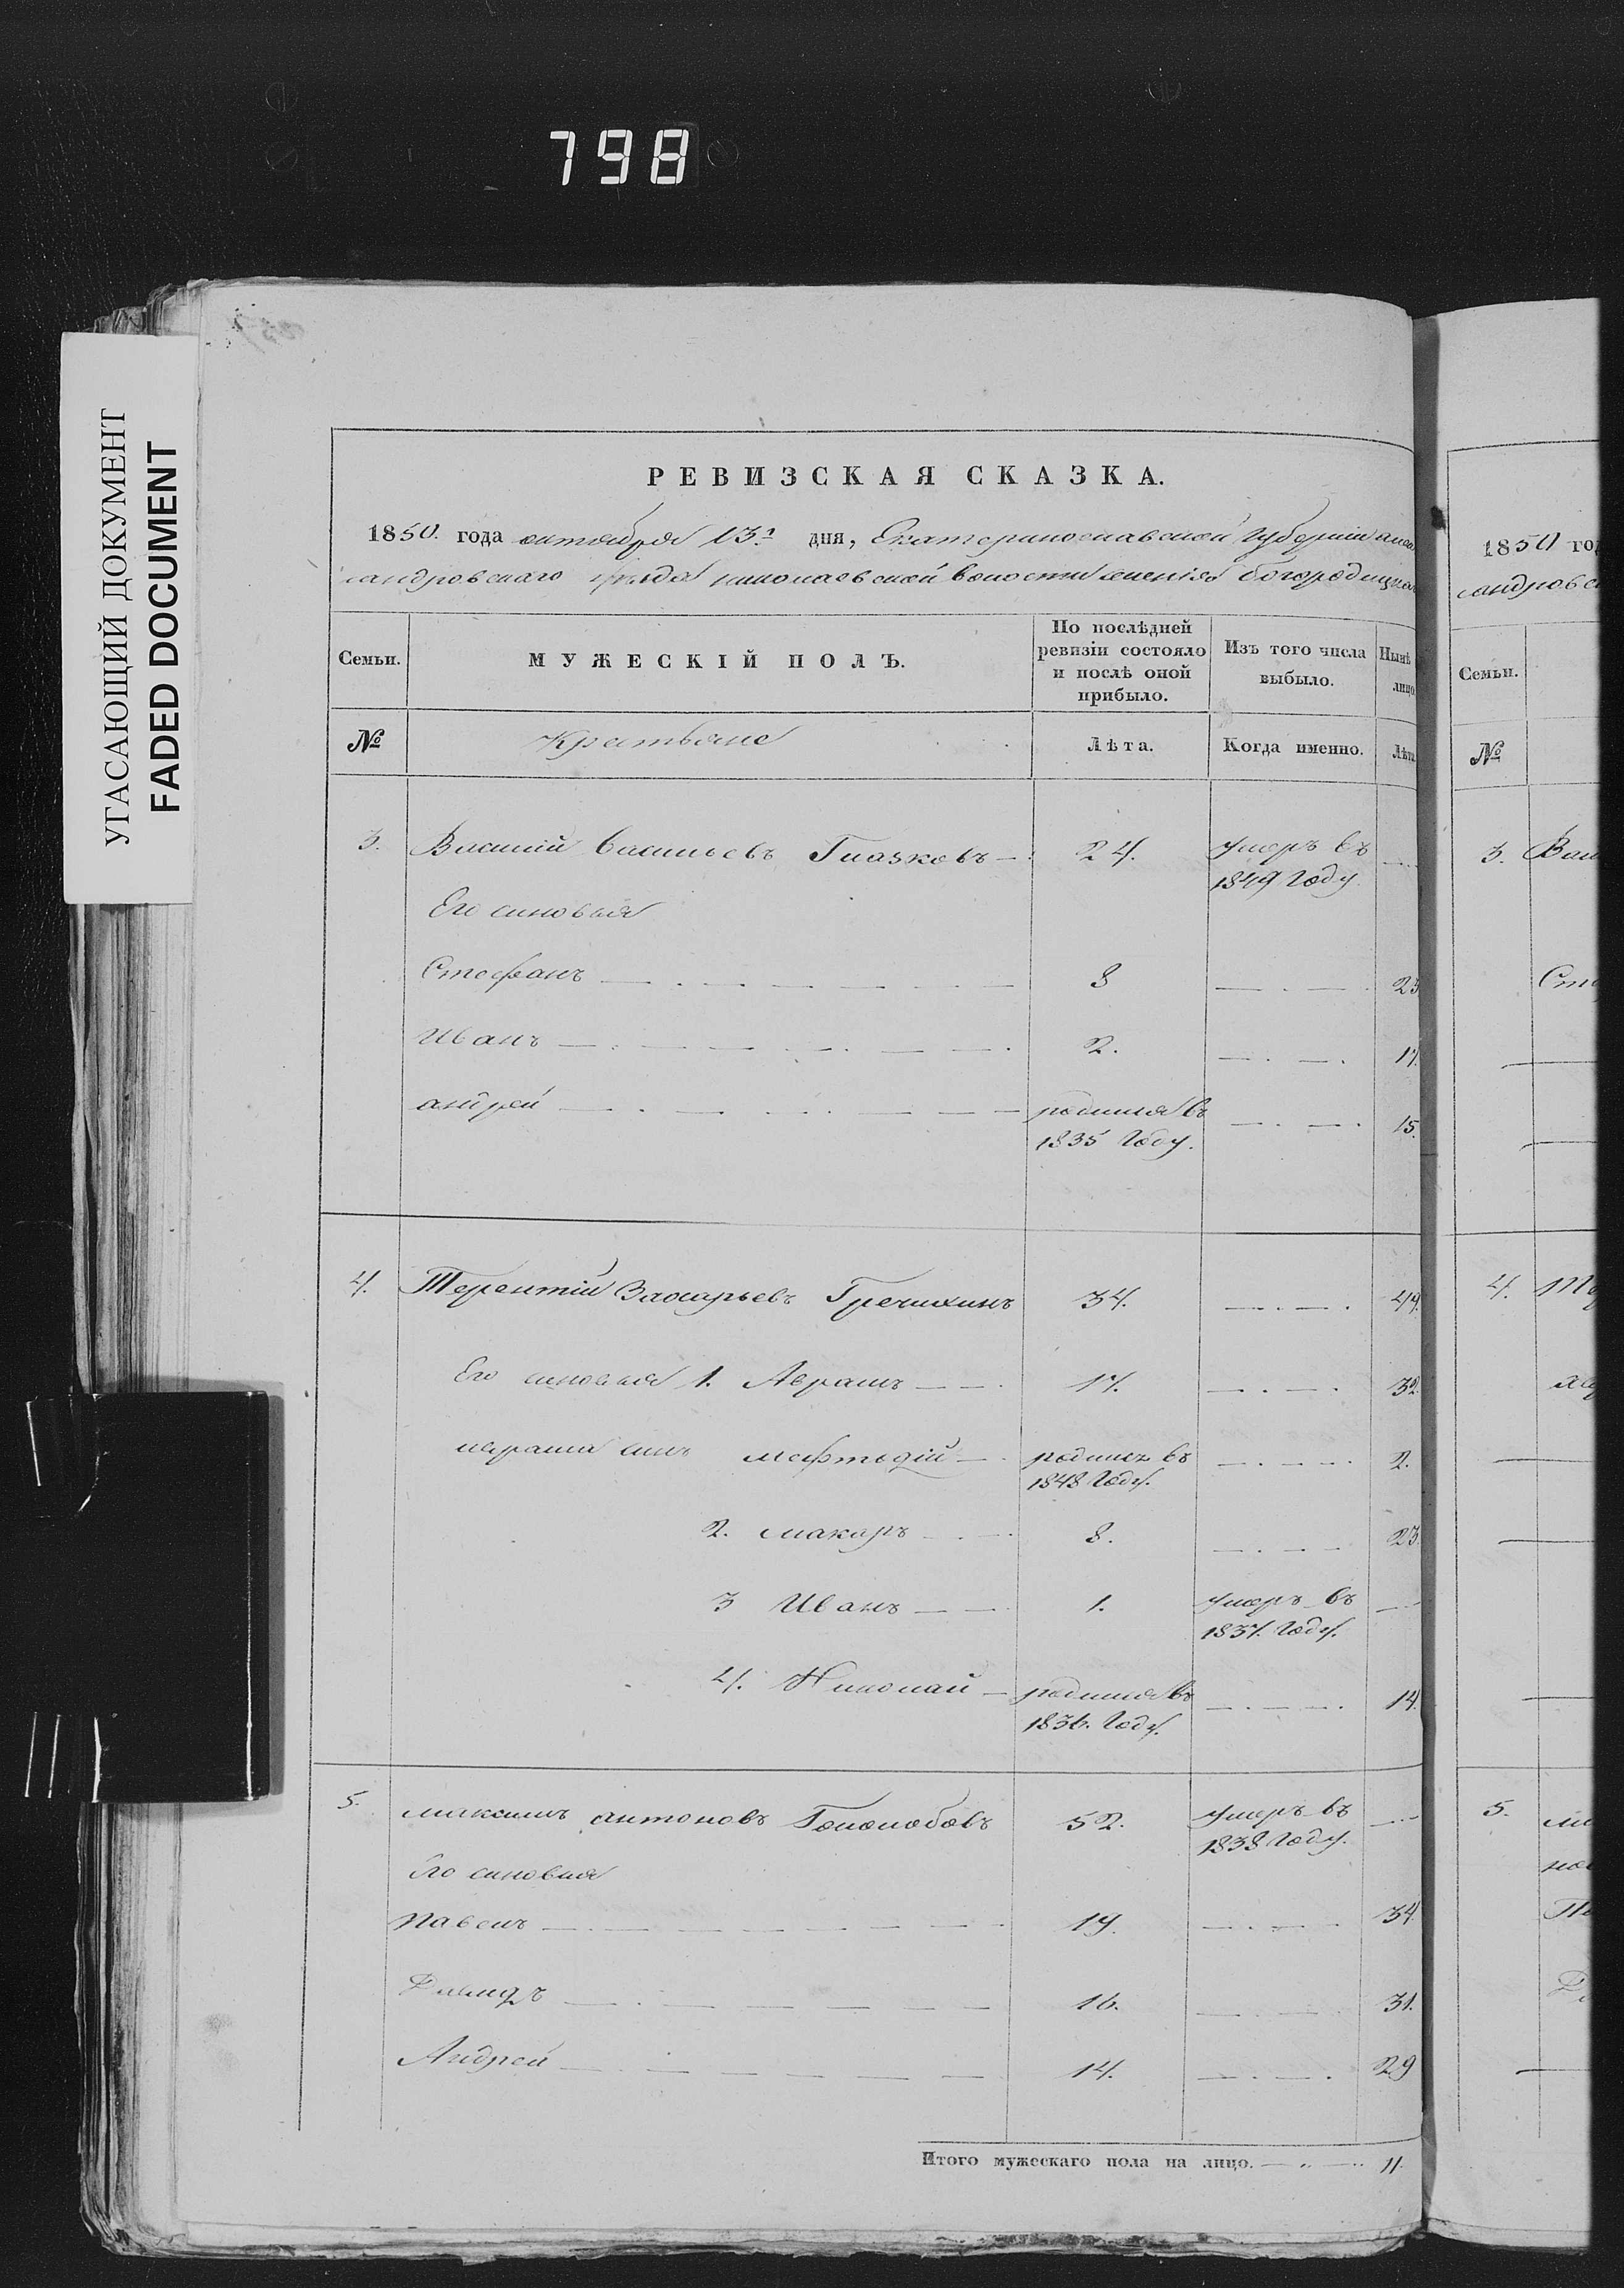 798
УГАСАЮЩИЙ ДОКУМЕНТ
FADED DOCUMENT
РЕВИЗСКАЯ СКАЗКА.
1850. года октября 13го дня, Екатеринославской Губерніи алек
сандровскаго уѣзда николаевской волости селенія богородицка
Семьи. МУЖЕСКІЙ ПОЛЪ. По послѣдней ревизіи состояло и послѣ оной прибыло. Изъ того числа выбыло. Нынѣ лицо
№ Крестьяне Лѣта. Когда именно. Лѣта
3. Василій Васильевъ Глазковъ 24. умеръ въ 1849 Году
Его синовья
Стефанъ 8 23
Иванъ 2. 17.
андрей родился въ 1835 Году. 15.
4. Терентій Захарьевъ Гречихинъ 34. 49.
Его синовья 1. Аврамъ 17. 32.
аврама синъ мефтодій родился въ 1848 Году. 2.
2. макаръ 8. 23.
3 Иванъ 1. умеръ въ 1837. Году.
4. Николай родился въ 1836. Году. 14.
5. максимъ антоновъ умеръ въ 1838 Году.
52.
Его синовья
павелъ 19. 34.
Давидъ 16. 31.
Андрей 14. 29
Итого мужескаго пола на лицо. 11.
1850 год
сандровс
Семьи.
№
3. Васи
Сте
4. Те
5. ма
Па
Да